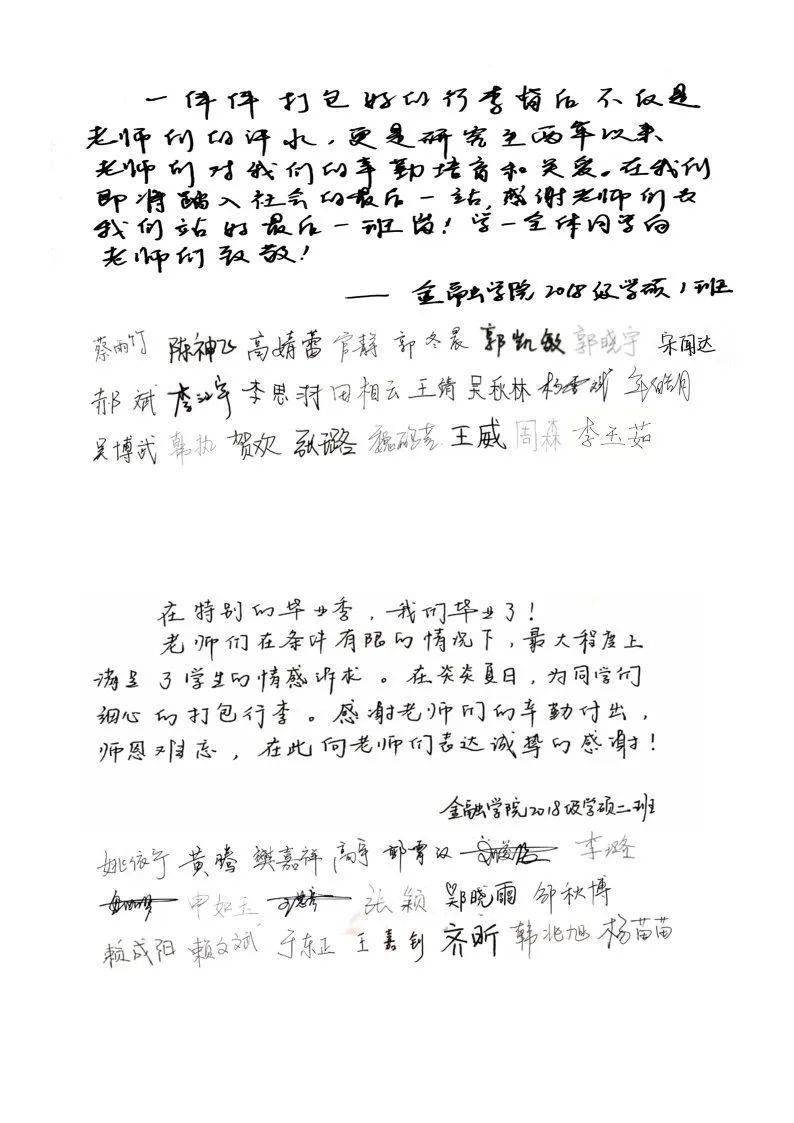 一件件打包好的行李背后不仅是
老师们的汗水，更是研究生两年以来
老师们对我们的辛勤培育和关爱。在我们
即将踏入社会的最后一站，感谢老师们为
我们站好最后一班岗！学一全体同学向
老师们致敬！
—— 金融学院2018级学硕1班
蔡雨竹 陈神飞 高婧蕾 官静 郭冬晨 郭凯敏 郭晓宇 宋闻达
郝斌 李思羽 田相云 王绮 吴秋林
吴博武 韩执 贺欢 张璐 王威 周森 李玉茹
在特别的毕业季，我们毕业了！
老师们在条件有限的情况下，最大程度上
满足了学生的情感诉求。在炎炎夏日，为同学们
细心的打包行李。感谢老师们的辛勤付出，
师恩难忘，在此向老师们表达诚挚的感谢！
金融学院2018级学硕二班
姚依宁 黄腾 樊嘉祥 高宇 李璐
申如玉 张颖 郑晓雨 邹秋博
赖成阳 赖文斌 于东正 王嘉钊 齐昕 韩兆旭 杨苗苗